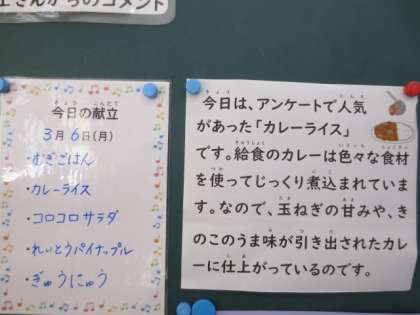 士さんからのコメント
今日の献立
3月6日(月)
・むぎごはん
・カレーライス
・コロコロサラダ
・れいとうパイナップル
・ぎゅうにゅう
今日は、アンケートで人気
があった「カレーライス」
です。給食のカレーは色々な食材
を使ってじっくり煮込まれていま
す。なので、玉ねぎの甘みや、き
のこのうま味が引き出されたカレ
ーに仕上がっているのです。